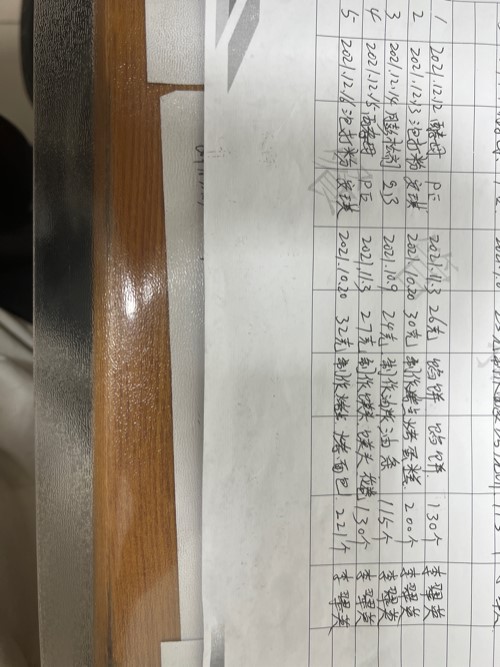 1 2021.12.12 酵母 PE 2021.11.3 26克 烙饼 烙饼 130个 李翠英
2 2021.12.13 泡打粉 安琪 2021.10.20 30克 制作 烤蛋糕 200个 李翠英
3 2021.12.14 膨松剂 2021.10.9 24克 制作油条 油条 115个 李翠英
4 2021.12.15 酵母 PE 2021.11.3 27克 制作馒头 馒头 130个 李翠英
5 2021.12.16 泡打粉 安琪 2021.10.20 32克 制作 烤面包 221个 李翠英